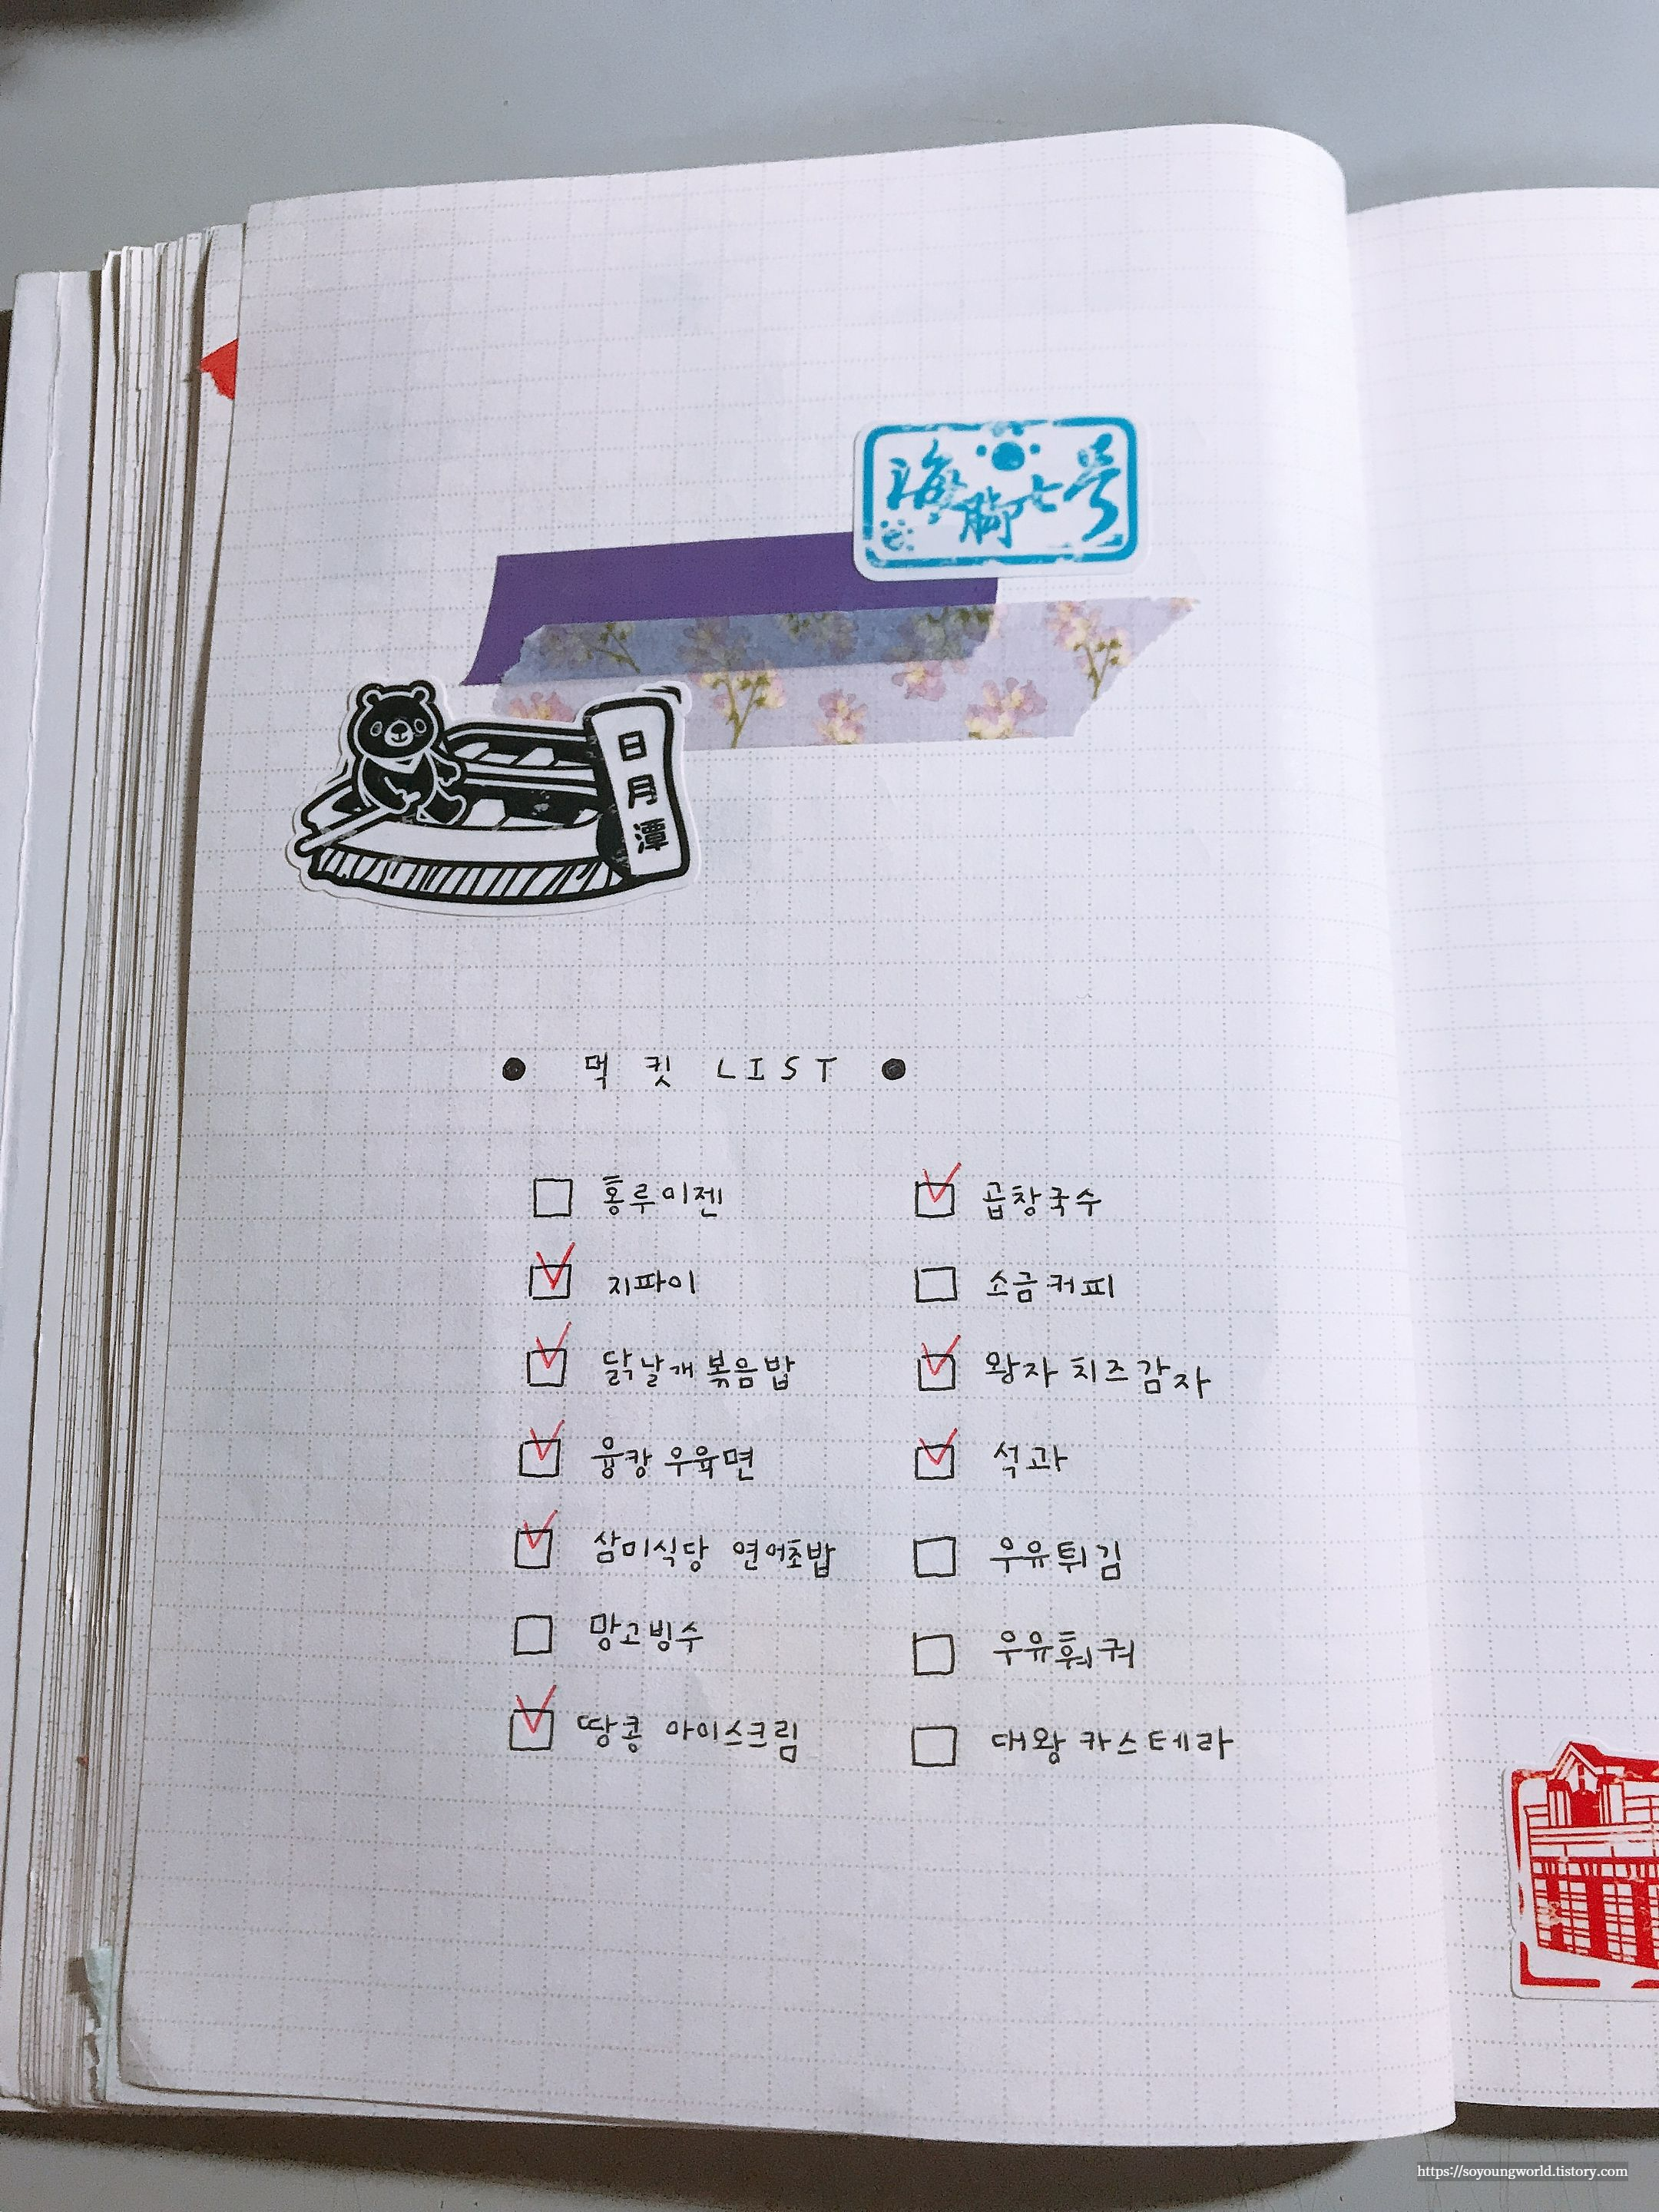 海脚七号
日
月
潭
● 먹킷 LIST ●
홍루이젠
지파이
닭날개볶음밥
융캉 우육면
삼미식당 연어초밥
망고빙수
땅콩 아이스크림
곱창국수
소금커피
왕자 치즈감자
석과
우유튀김
우유훠궈
대왕 카스테라
https://soyoungworld.tistory.com